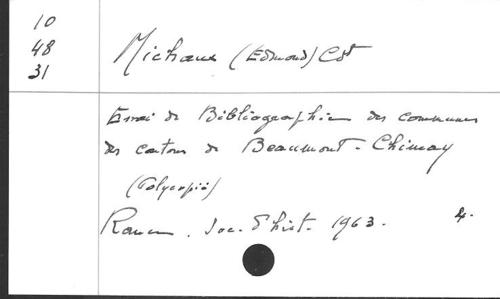 10
48
31
Michaux (Edmond) Cdt
Essai de Bibliographie des communes
des cantons de Beaumont - Chimay
(Polycopié)
Rance. Soc. d'hist. 1963. 4.